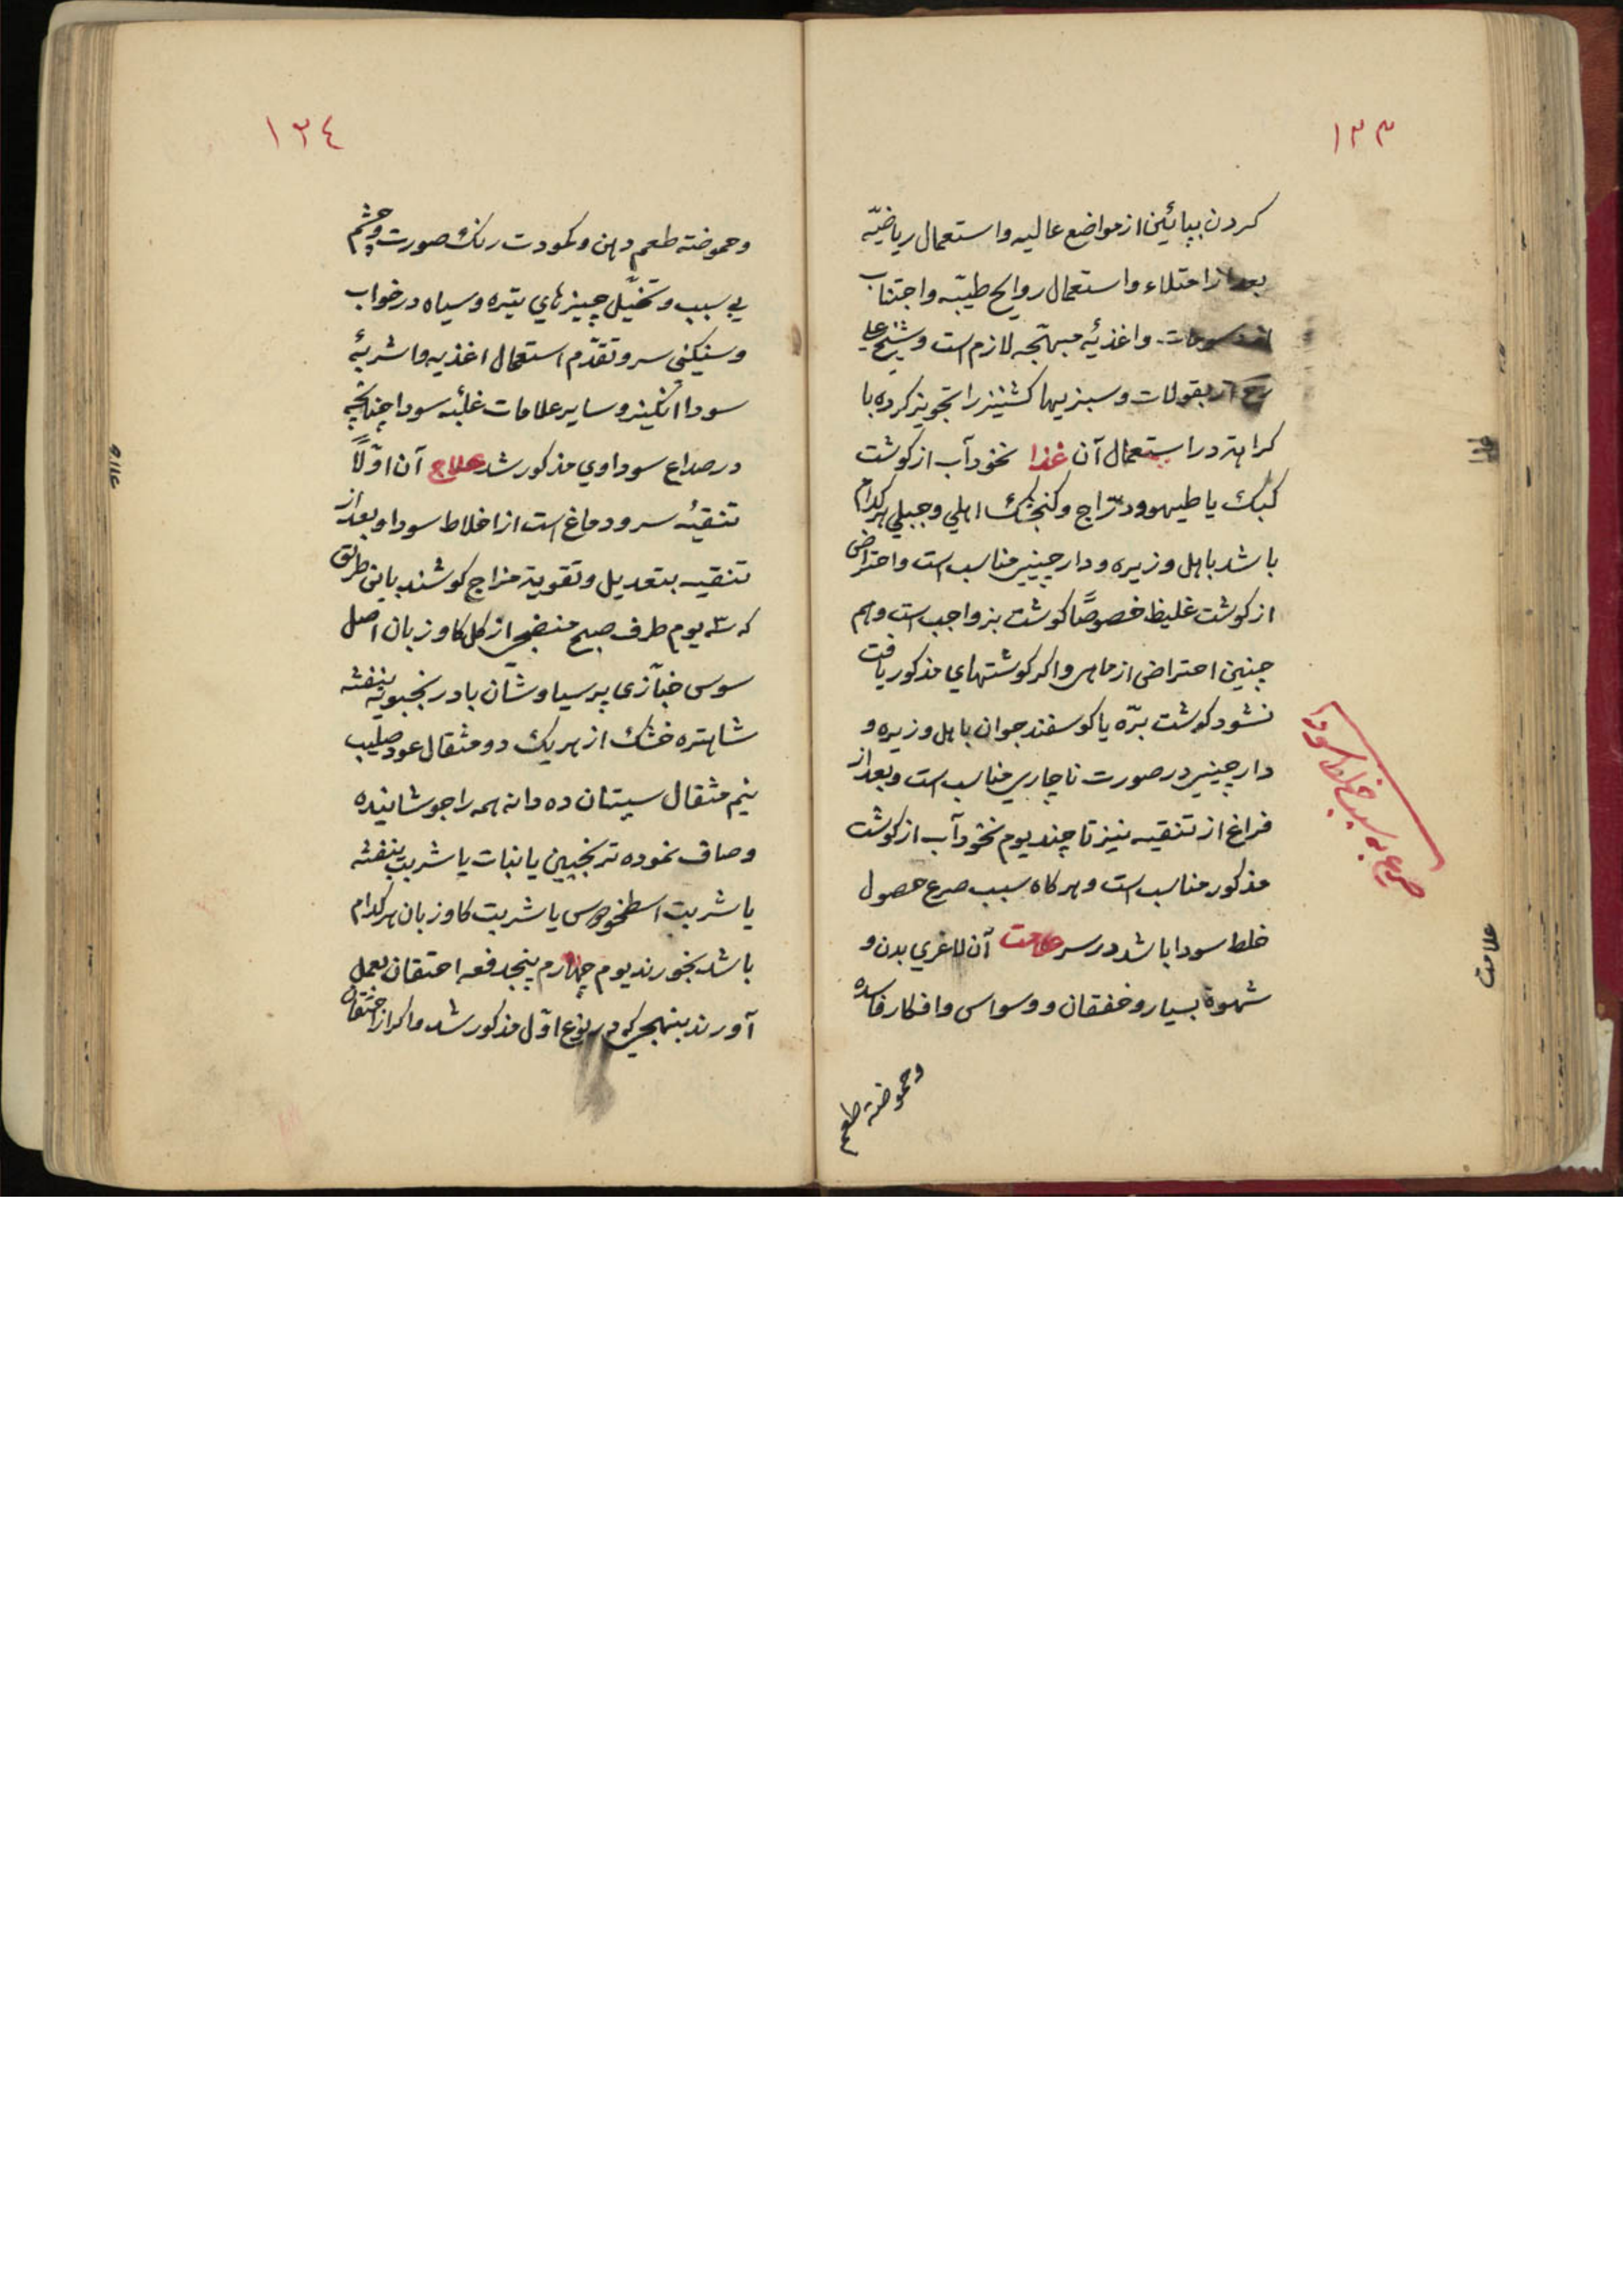 ١٣٣
کردن بپائین از مواضع عالیه و استعمال ریاضیّه
بعد از امتلاء و استعمال روایح طیّبه و اجتناب
از دسومات و اغذیهٔ مهیّجه لازم است و شیخ علی
رح از بقولات و سبزیها کشنیز را تجویز کرده با
کراهة در استعمال آن غذا نخودآب از کوشت
کبک یا طیهو و درّاج و کنجشک اهلی و جبلی هر کدام
باشد باهل و زیره و دارچینی مناسب است و احتراض
از کوشت غلیظ خصوصًا کوشت بز واجب است و هم
چنین احتراض از ماهی و اکر کوشتهای مذکور یافت
نشود کوشت برّه یا کوسفند جوان باهل و زیره و
دارچینی در صورت ناچاری مناسب است و بعد از
فراغ از تنقیه نیز تا چند یوم نخودآب از کوشت
مذکور مناسب است و هر کاه سبب صرع حصول
خلط سودا باشد در سر علامت آن لاغری بدن و
شهوة بسیار و خفقان و وسواس و افکار فاسده
وحموضة طعم
صرع به سبب خلط سودا
علامت
١٣٤
وحموضة طعم دهن و کمودت رنک صورت و چشم
بی سبب و تخیّل چیزهای تیره و سیاه در خواب
و سنکینی سر و تقدّم استعمال اغذیه و اشربهٔ
سودا انکیز و سایر علامات غلبهٔ سودا چنانچه
در صداع سوداوی مذکور شد علاج آن اوّلًا
تنقیهٔ سر و دماغ است از اخلاط سودا و بعد از
تنقیه بتعدیل و تقویة مزاج کوشند باین طریق
که ٣ یوم طرف صبح منضجی از کل کاوزبان اصل
سوس خبّازی پرسیاوشان بادرنجبویه بنفشه
شاهتره خشک از هر یک دو مثقال عود صلیب
نیم مثقال سپتان ده دانه همه را جوشانیده
و صاف نموده ترنجبین یا نبات یا شربت بنفشه
یا شربت اسطخودوس یا شربت کاوزبان هر کدام
باشد بخورند یوم چهارم پنجدفعه احتقان بعمل
آورند بنهجی که در نوع اوّل مذکور شد و اکر از احتقان
علاج